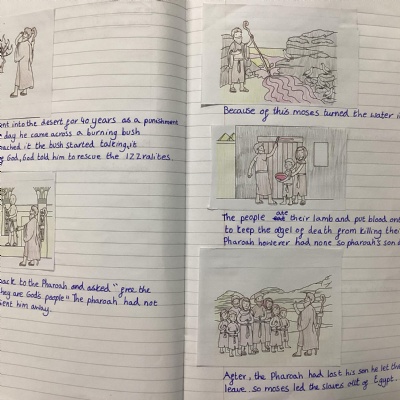 ent into the desert for 40 years as a punishment
day he came across a burning bush
oached it the bush started talking, it
God, God told him to rescue the IZZralites
back to the Pharoah and asked "free the
they are God's people" The pharoah had not
sent him away.
Because of this moses turned the water i
The people ate their lamb and put blood on
to keep the agel of death from killing thei
Pharoah however had none so pharoah's son
After, the Pharoah had lost his son he let the
leave. so moses led the slaves out of Egypt.